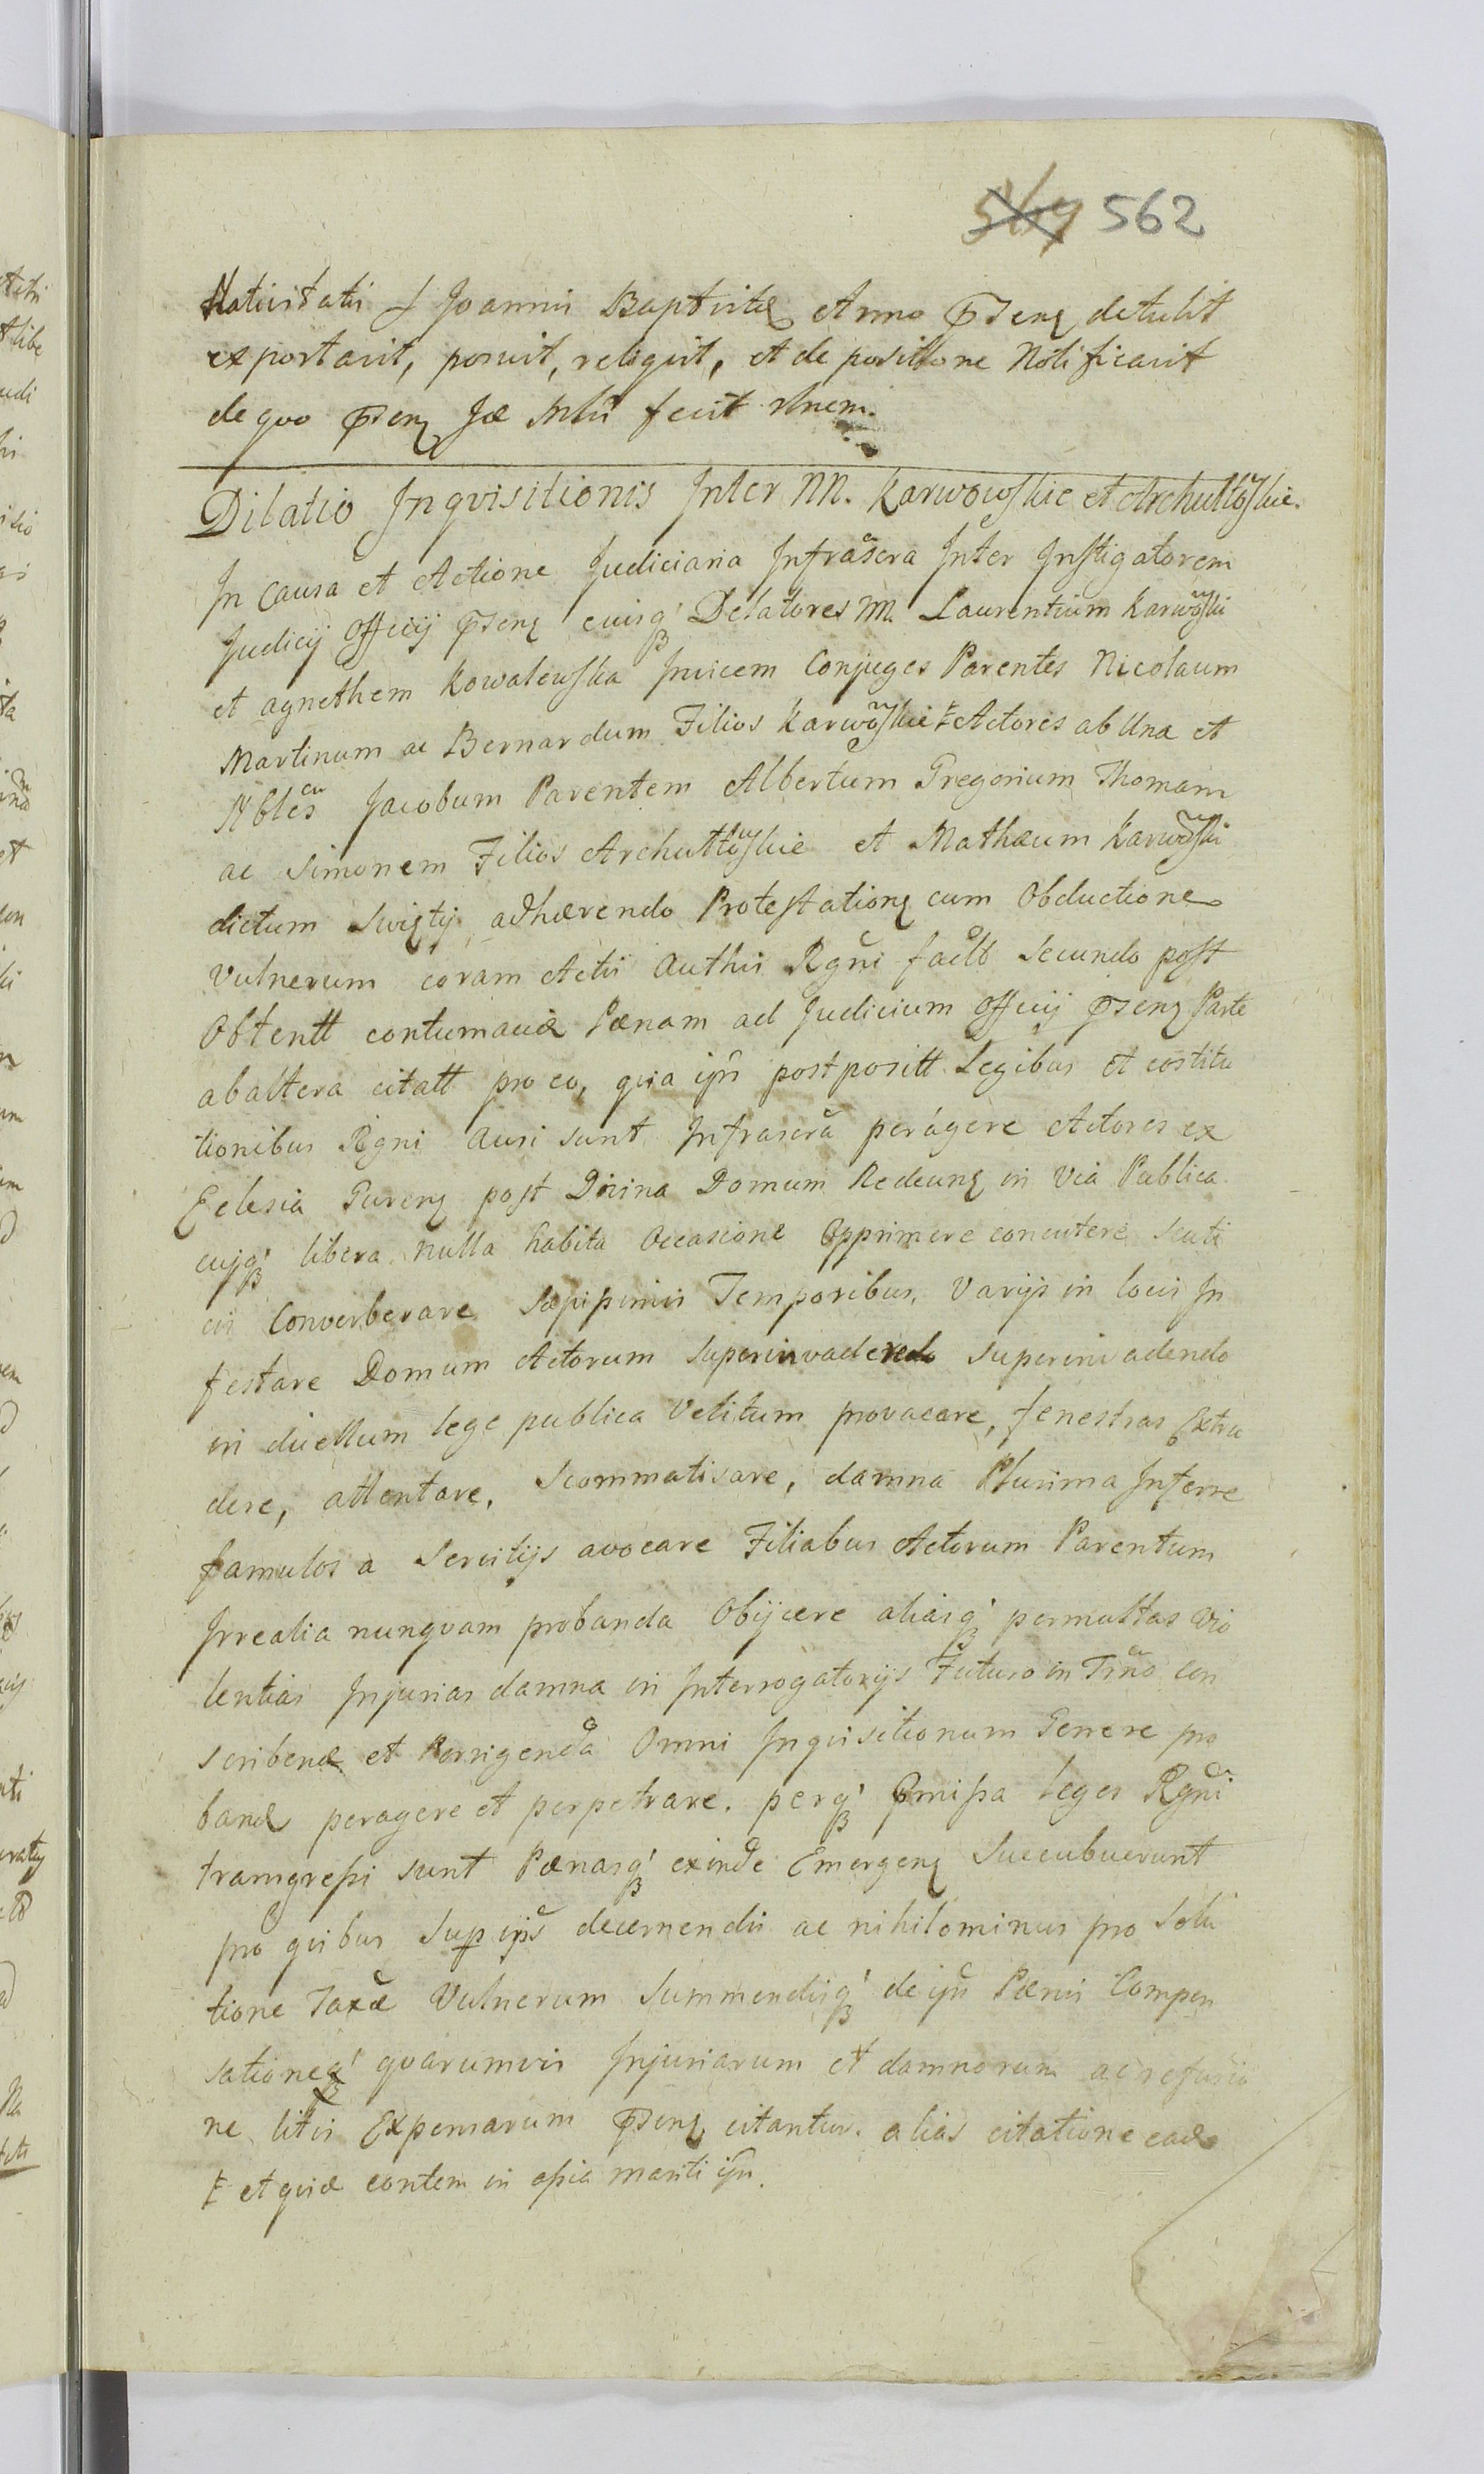 569 562
Nativitatis S Joannis Baptistæ Anno Psenz detulit
exportavit, posuit, reliqvit, et de positione Notificavit
de qvo Psenz Jæ Mltū fecit rlnem.
Dilatio Inqvisitionis Inter NN. Karwowskie et Archuttoskie.
In Causa et Actione Judiciaria Infrascra Inter Instigatorem
Judicij Officij Psenz eiusq Delatores NN. Laurentium Karwoski
et agnethem Kowalewska Invicem Conjuges Parentes Nicolaum
Martinum ac Bernardum Filios Karwoskie Ł Actores ab Una et
Nbles Jacobum Parentem Albertum Gregorium Thomam
ac Simonem Filios Archuttoskie et Mathæum Karwoski
dictum Swięty adhærendo Protestationz cum Obductione
Vulnerum coram Actis Authis Rgni factt Secundo post
Obtentt contumaciæ Pænam ad Judicium Officij Psenz Parte
ab altera citatt pro eo, qvia ipsi postpositt Legibus et costitu
tionibus Rgni Ausi sunt Infrascra perágere Actores ex
Eclesia Gurenz post Divina Domum Redeunz in Via Publica
cujq libera nulla habita Occasione Opprimere concutere Scuti
cis Converberare Sæpissimis Temporibus, Varijs in locis In
festare Domum Actorum Superinvadendo superinvadendo
in duellum lege publica Vetitum provacare, fenestras Extru
dere, attentare, Scommatisare, damna Plurima Inferre
famulos a Servitijs avocare Filiabus Actorum Parentum
Irrealia nunqvam probanda Obijcere aliasq permultas Vio
lentias Injurias damna in Interrogatorijs Futuro in Trno Con
scribend et Porrigenda Omni Inqvisitionum Genere pro
band peragere et perpetrare. perq Pmissa leges Rgni
transgressi sunt Pænasq exinde Emergenz Succubuerunt
pro qvibus Sup ipsis decernendis ac nihilominus pro Solu
tione Taxæ Vulnerum Summendisq de ipsis Pænis Compen
sationeq qvarumvis Injuriarum et damnorum ac refusio
ne litis Expensarum Psenz citantur. alias citatione eade
Ł et qviæ contem in assia mariti ipsi.